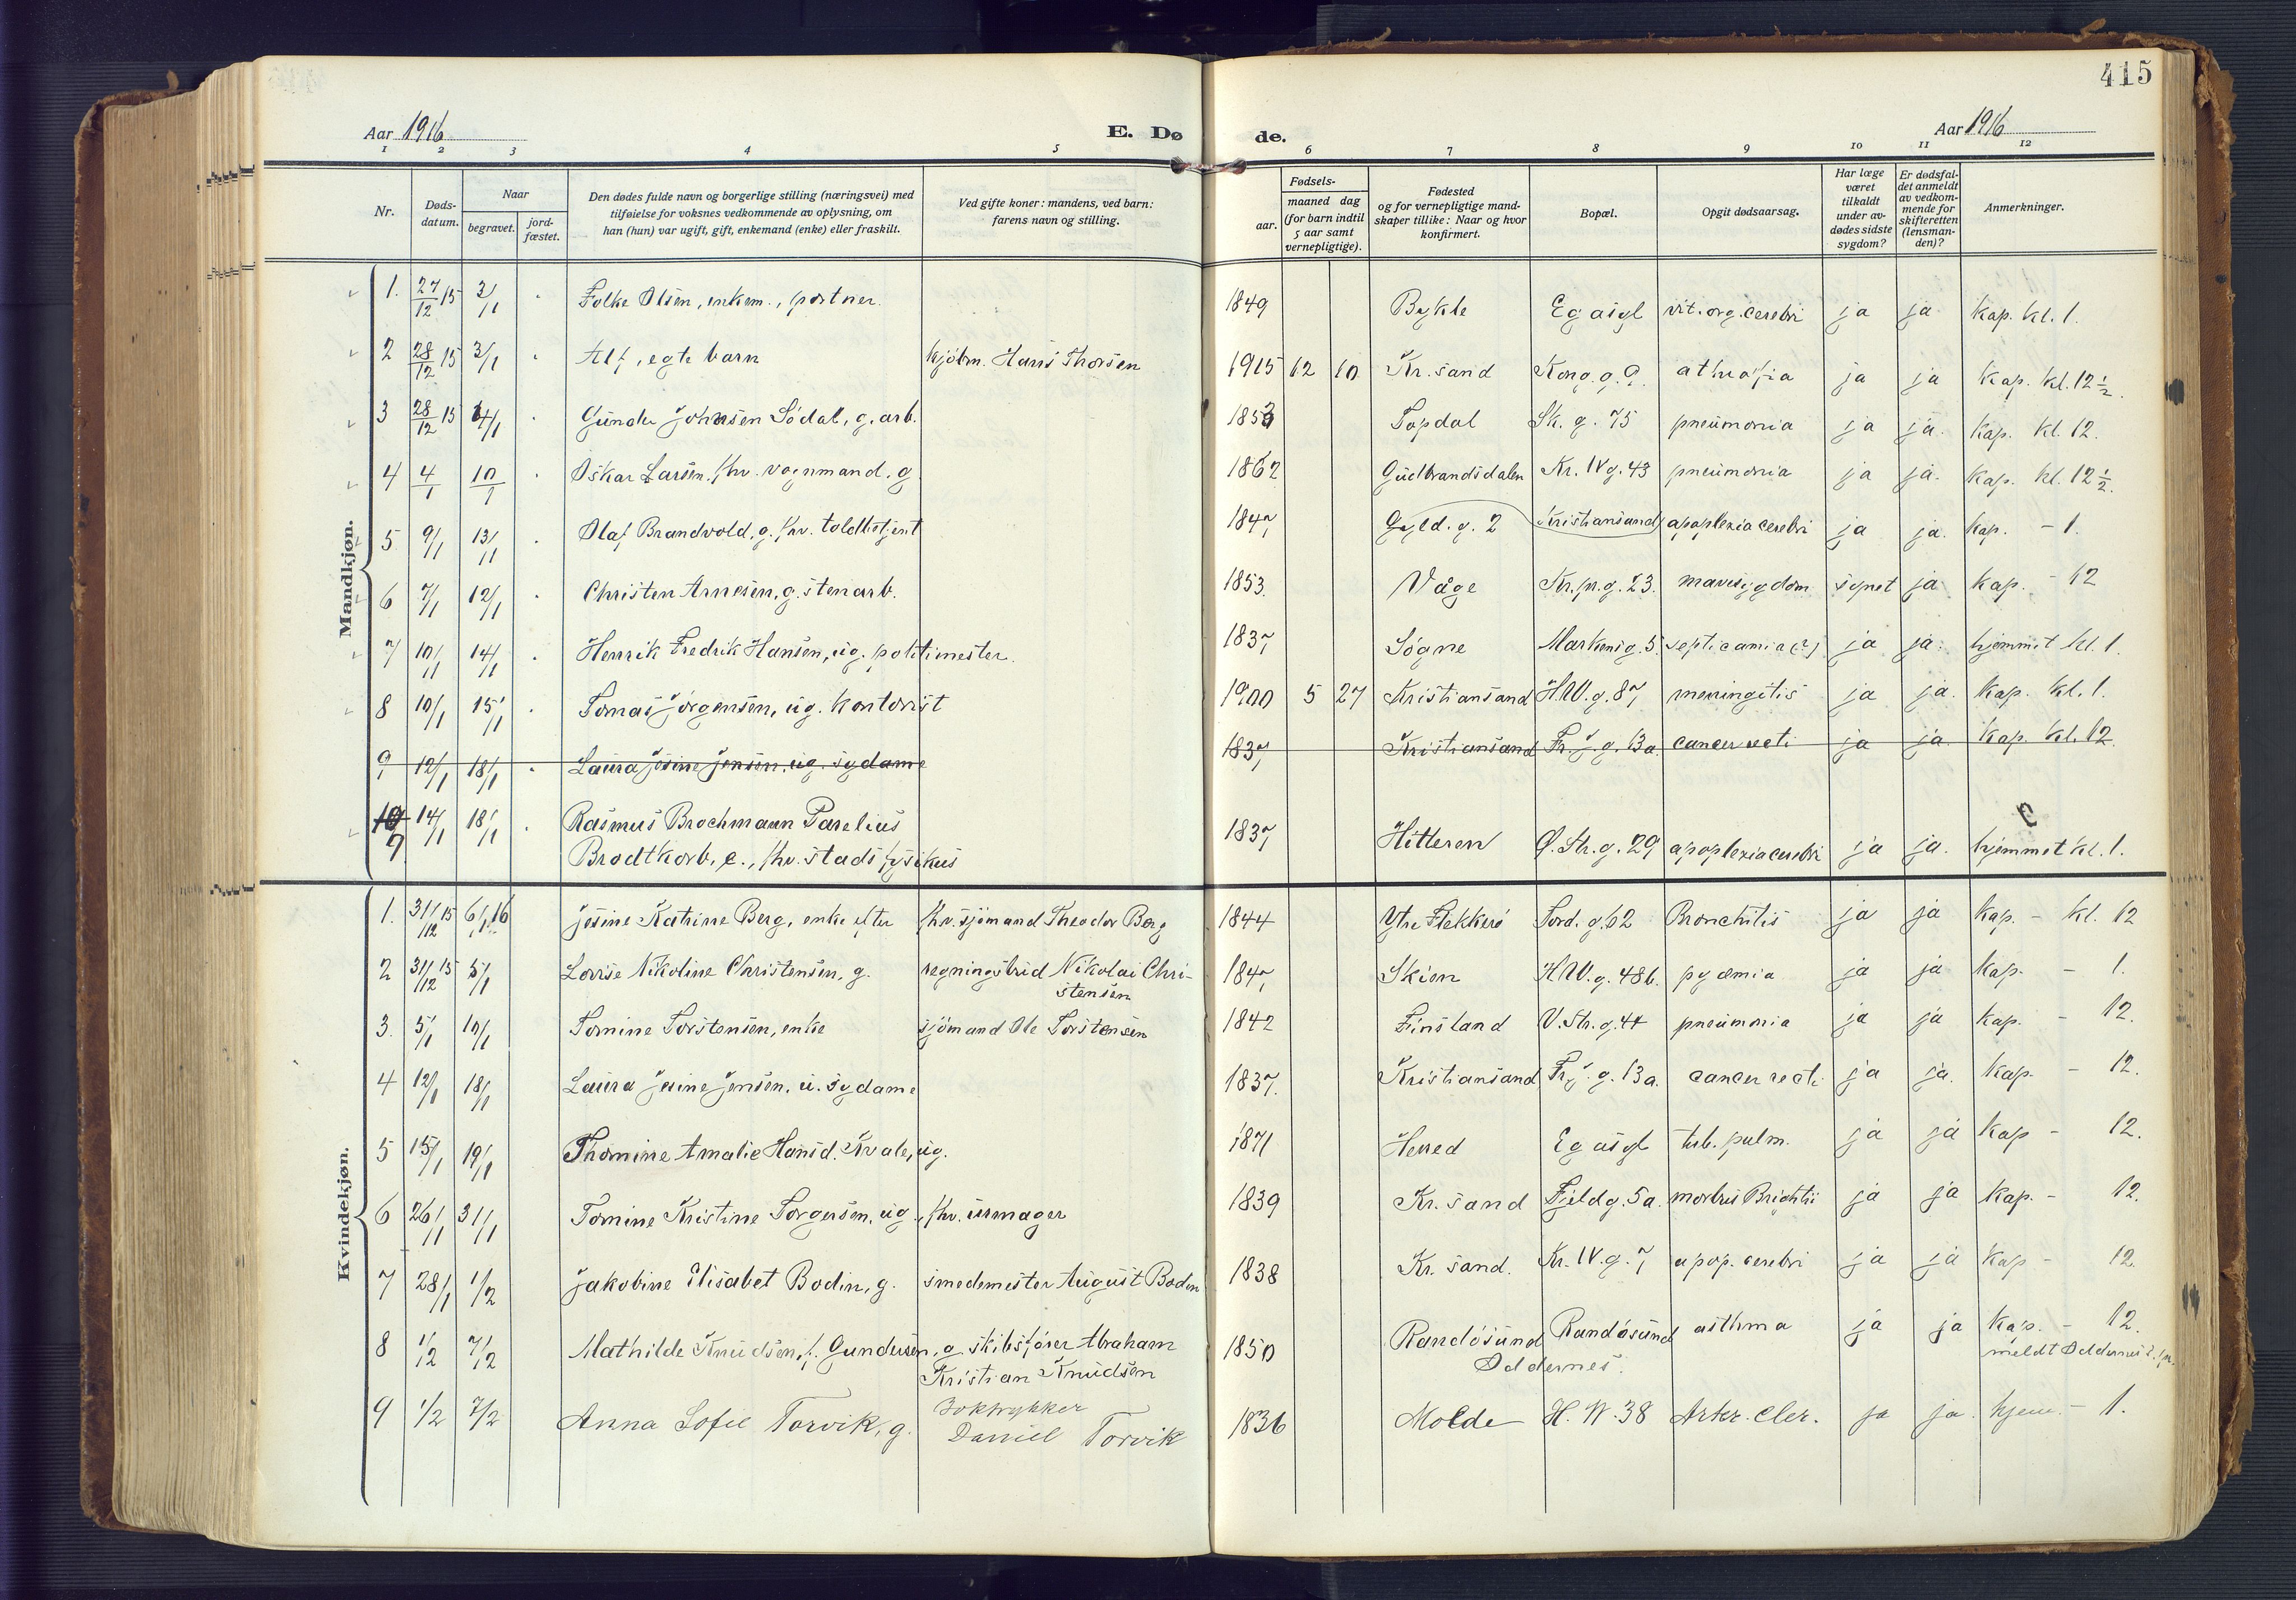 415
Aar 1916
E. Dø
de.
Aar 1916
1 2 3 4 5 6 7 8 9 10 11 12
Nr.
Døds-
datum.
Naar
begravet.
jord-
fæstet.
Den dødes fulde navn og borgerlige stilling (næringsvei) med
tilføielse for voksnes vedkommende av oplysning, om
han (hun) var ugift, gift, enkemand (enke) eller fraskilt.
Ved gifte koner: mandens, ved barn:
farens navn og stilling.
Fødsels-
aar.
maaned dag
(for barn indtil
5 aar samt
vernepligtige).
Fødested
og for vernepligtige mand-
skaper tillike: Naar og hvor
konfirmert.
Bopæl.
Opgit dødsaarsag.
Har læge
været
tilkaldt
under av-
dødes sidste
sygdom?
Er dødsfal-
det anmeldt
av vedkom-
mende for
skifteretten
(lensman-
den)?
Anmerkninger.
Mandkjøn.
1. 27/12 15 3/1 Folke Olsen, enkem., portner. 1849 Bykle Eg asyl vit. org. cerebri ja ja Kap. kl. 1.
2 28/12 15 3/1 Alf, egte barn kjøbm. Hans Thorsen 1915 12 10 Kr.sand Kong. g. 9. ja ja Kap. kl. 12 ½.
3 28/12 15 4/1 Gunder Johnsen Sødal, g. arb. 1853 Topdal Sk. g. 75 pneumonia ja ja. Kap. kl. 12.
4 4/1 10/1 Oskar Larsen, fhv. vognmand, g 1862 Gudbrandsdalen Kr. IV g. 43 pneumonia ja ja. Kap. kl. 12 ½.
5 9/1 13/1 Olaf Brandvold, g. fhv. toldbetjent 1847 Gyld. g. 2 Kristiansand apoplexia cerebri ja ja. Kap. - 1.
6 7/1 12/1 Christen Arnesen, g. stenarb. 1853. Våge Kr. pr. g. 23. mavesygdom synet ja Kap. - 12
7 10/1 14/1 Henrik Fredrik Hansen, ug. politimester. 1837 Søgne Markensg. 5. septicæmia (?) ja ja. hjemmet kl. 1.
8 10/1 15/1 Tomas Jørgensen, ug. kontorist 1900 5 27 Kristiansand H.W. g. 87 meningitis ja ja. Kap. kl. 1.
9 12/1 18/1 Laura Josine Jensen, ug. sydame 1837 Kristiansand Fr. J. g. 13a. cancer recti ja ja Kap. kl. 12.
10 9 14/1 18/1 Rasmus Brochmann Parelius
Brodtkorb, e., fhv. stadsfysikus 1837 Hitteren Ø. Str. g. 29 apoplexia cerebri ja ja. hjemmet kl. 1.
Kvindekjøn.
1. 31/12 15 6/1 16 Jesine Katrine Berg, enke efter fhv. sjømand Theodor Berg 1844 Ytre Flekkerø Tord. g. 62 Bronchitis ja ja Kap. - kl. 12
2 31/12 15 5/1 Lovise Nikoline Christensen, g. regningsbud Nikolai Chri-
stensen 1847 Skien H.W. g. 48b. pyæmia ja ja Kap. - 1.
3. 5/1 10/1 Tomine Torstensen, enke sjømand Ole Torstensen 1842 Finsland V. Str. g. 44 pneumonia ja ja Kap. - 12.
4 12/1 18/1 Laura Josine Jensen, u. sydame 1837. Kristiansand Fr. J. g. 13a. cancer recti ja ja. Kap. - 12.
5 15/1 19/1 Thomine Amalie Hansd. Kvale, ug. 1871 Herred Eg asyl tub. pulm. ja ja Kap - 12.
6 26/1 31/1 Tomine Kristine Torgersen, ug., fhv. urmager 1839 Kr. sand Fjeldg. 5a. morbus Brightii ja ja Kap. - 12.
7 28/1 1/2 Jakobine Elisabet Bodin, g. smedemester August Bodin 1838 Kr. sand. Kr. IV. g. 7 apop. cerebri ja ja Kap - 12.
8 1/2 7/2 Mathilde Knudsen, f. Gundersen, g. skibsfører Abraham
Kristian Knudsen 1850 Randøsund
Oddernes. Randøsund asthma ja ja Kap. - 12.
meldt Oddernes
9 1/2 7/2 Anna Sofie Torvik, g. Boktrykker
Daniel Torvik 1836 Molde H. W. 38 Arter. cler. ja ja hjem. - 1.